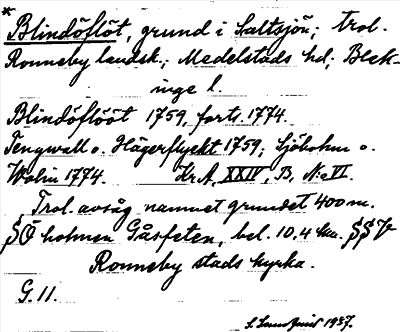 * Blindöflöt, grund i Saltsjön; trol.
Ronneby landsk.; Medelstads hd; Blek-
inge l.
Blindöflööt 1759, forts. 1774.
Tengwall o. Hägerflyckt 1759; Sjöbohm o.
Wolin 1774. Kr. A, XXIV, B, N:o VI.
Trol. avsåg namnet grundet 400 m.
§Ö holmen Gåsfeten, bel. 10,4 km. §§V
Ronneby stads kyrka.
G. 11.
S. 1937.